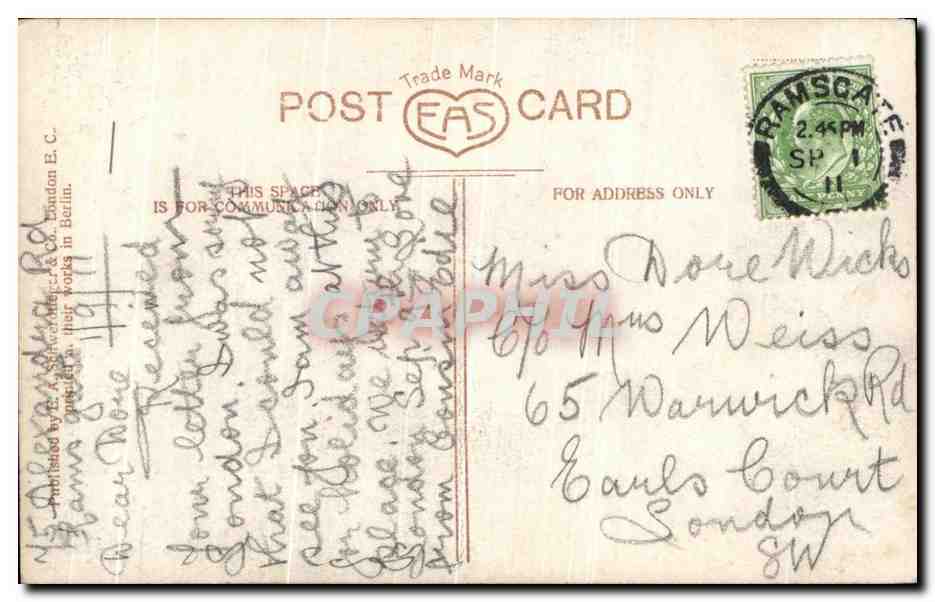 Trade Mark
POST CARD
EAS
THIS SPACE
IS FOR COMMUNICATION ONLY
FOR ADDRESS ONLY
RAMSGATE
2.45PM
SP 1
11
Published by E. A. Schwerdtfeger & Co., London E. C.
printed at their works in Berlin.
Alexandra Rd
Ramsgate
1/9/11
Dear Dore
Received
your letter from
London. I was sorry
that I could not
see you I am at this
for Holidays
place. We
London Sept
from Cousin Edie
Miss Dore Wicks
C/o Mrs Weiss
65 Warwick Rd
Earls Court
London
SW
CPAPHIL